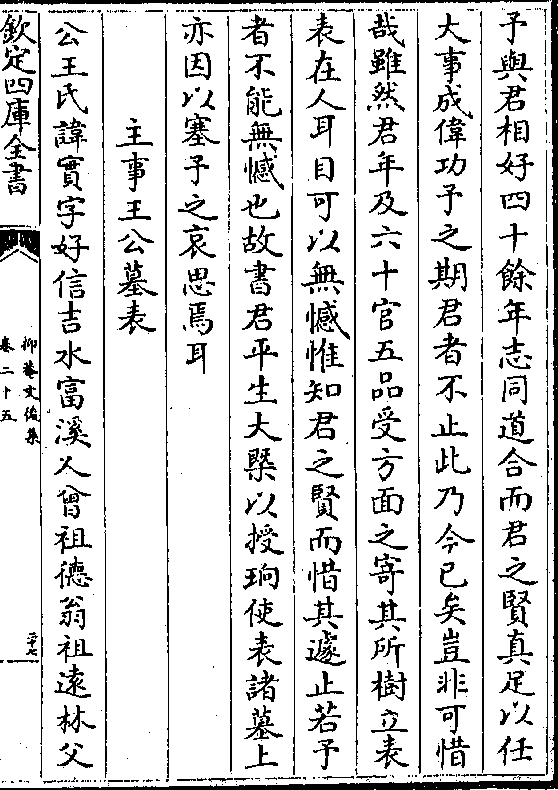 予與君相好四十餘年志同道合而君之賢真足以任
大事成偉功予之期君者不止此乃今已矣豈非可惜
哉雖然君年及六十官五品受方面之寄其所樹立表
表在人耳目可以無憾惟知君之賢而惜其遽止若予
者不能無憾也故書君平生大槩以授珦使表諸墓上
亦因以塞予之哀思焉耳
主事王公墓表
公王氏諱實字好信吉水富溪人曾祖德翁祖遠林父
欽定四庫全書
抑菴文後集
卷二十五
三十七